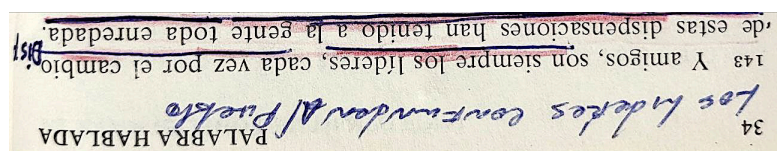 34 PALABRA HABLADA
Los lideres confunden Al Pueblo
143 Y amigos, son siempre los líderes, cada vez por el cambio
de estas dispensaciones han tenido a la gente toda enredada.
DISP